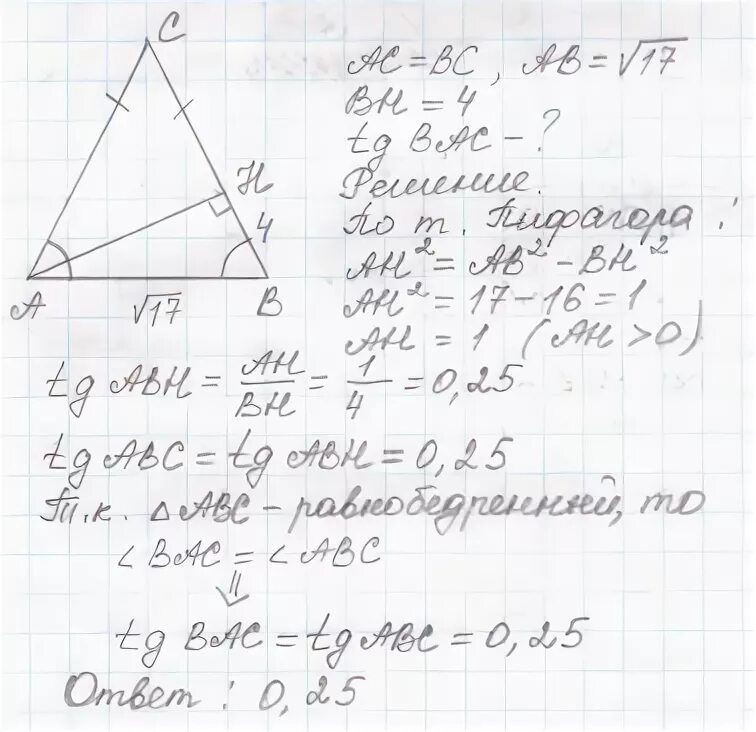 C
AC = BC, AB = √17
BH = 4
tg BAC - ?
Решение.
H
4
По т. Пифагора:
AH² = AB² - BH²
A
√17
B
AH² = 17 - 16 = 1
AH = 1 (AH > 0)
tg ABH = AH/BH = 1/4 = 0,25
tg ABC = tg ABH = 0,25
Т.к. △ABC - равнобедренный, то
∠BAC = ∠ABC
⇓
tg BAC = tg ABC = 0,25
Ответ: 0,25